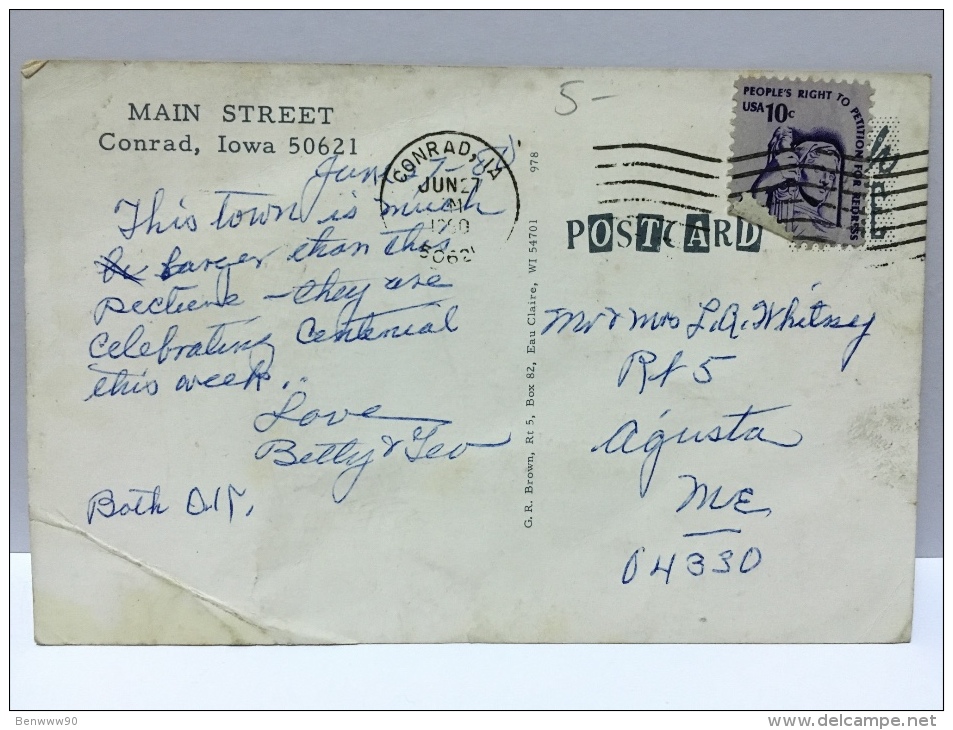 MAIN STREET
Conrad, Iowa 50621
June 27-80
This town is much
larger than this
picture - they are
celebrating Centenial
this week..
Love
Betty & Geo
Both O.K.
5-
CONRAD, IA
JUN 27
1980
5062
978
G. R. Brown, Rt 5, Box 82, Eau Claire, WI 54701
PEOPLE'S RIGHT TO PETITION FOR REDRESS
USA 10c
POSTCARD
Mr & Mrs L.A. Whitney
Rt 5
Agusta
ME
04330
Benwww90
delcampe.net